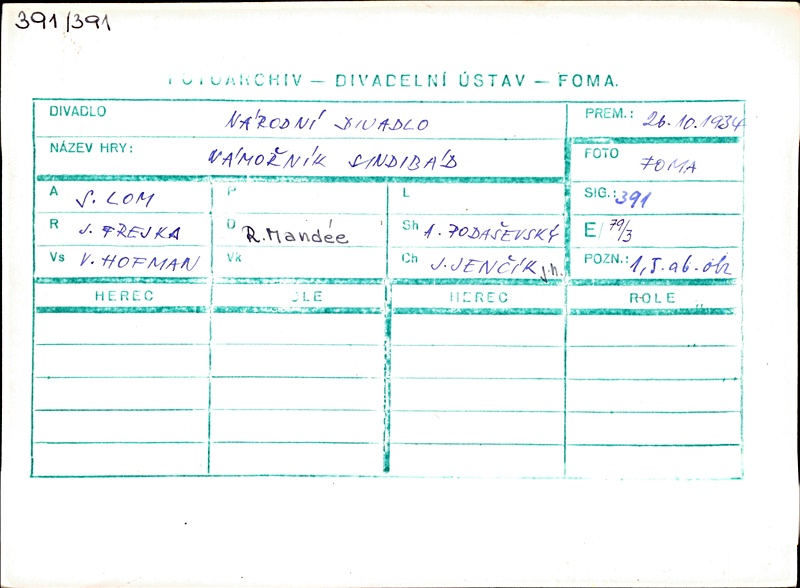 391/391
FOTOARCHIV — DIVADELNÍ ÚSTAV — FOMA.
DIVADLO NÁRODNÍ DIVADLO PREM.: 26.10.1934
NÁZEV HRY: NÁMOŘNÍK SINDIBÁD FOTO FOMA
A S. LOM P L SIG.: 391
R J. FREJKA D R. Mandée Sh 1. PODAŠEVSKÝ E/ 79/3
Vs V. HOFMAN Vk Ch J. JENČÍK j.h. POZN.: 1,5. ab. obr
HEREC ROLE HEREC ROLE